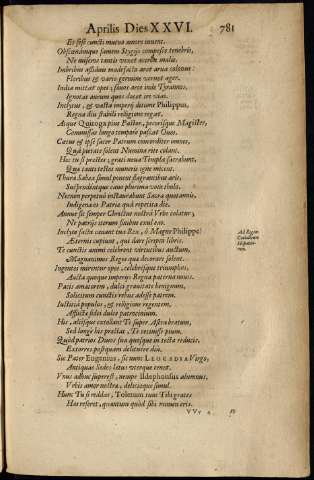 Aprilis Dies XXVI. 781
Et sese cuncti mutuo amore iuuent.
Obscœnámque famem Stygijs compesce tenebris,
Ne miseros tantis vexet acerba malis.
Imbribus assiduè madefacta aret arua colonus:
Floribus & vario germine vernet ager.
India mittat opes; sanet arce incis Tyrannis,
Ignotas aurum quos docet ire vias.
Inclytus, & vasta imperij ditione Philippus,
Regna diu stabili religione regat.
Atque Quiroga pius Pastor, pecorísque Magister,
Commissas longo tempore pascat Oues.
Cœtus & ipse sacer Patrum concorditer vnus,
Quâ pietate solent Numina ritè colant.
Hoc tu si præstes; grati noua Templa sacrabunt,
Quæ tanti testes muneris igne micent.
Thura Sabæa simul ponent flagrantibus aris,
Suspendéntque tuos plurima vota tholo.
Necnon perpetuò instaurabunt Sacra quotannis,
Indigenæ Patria quâ repetita die.
Annuè sic semper Christus nostra Vrbe colatur;
Ne patrijs iterum sedibus exul eas.
Inclyta facta canant tua Rex, ô Magne Philippe:
Æternis cupiunt, qui dare scripta libris.
Te cuncti animi celebrent virtutibus auctum,
Magnanimos Reges quæ decorare solent.
Ingentes mirentur opes, celebrésque triumphos,
Aucta quoque imperijs Regna paterna nouis.
Pacis amatorem, dulci grauitate benignum,
Solitum cunctis rebus adesse patrem.
Iustitiâ populos, & religione regentem,
Afflictis fidei dulce patrocinium.
His, alijsque extollant Te super Astra beatum,
Sed longè his præstat, Te timuisse pium.
Quòd patrios Diuos sua quosque in tecta reducis,
Extorres postquam delituere diu.
Sic Pater Eugenius, sic tum LEOCADIA Virgo,
Antiquas Sedes lætus vterque tenet.
Vnus adhuc superest, nempe Ildephonsus alumnus,
Vrbis amor nostræ, deliciæque simul.
Hunc Tu si reddas, Toletum tum Tibi grates
Hæc referet, quantum quod sibi munus eris.
Ad Regem
Catholicum
Hispaniarum.
VVv 2 Et